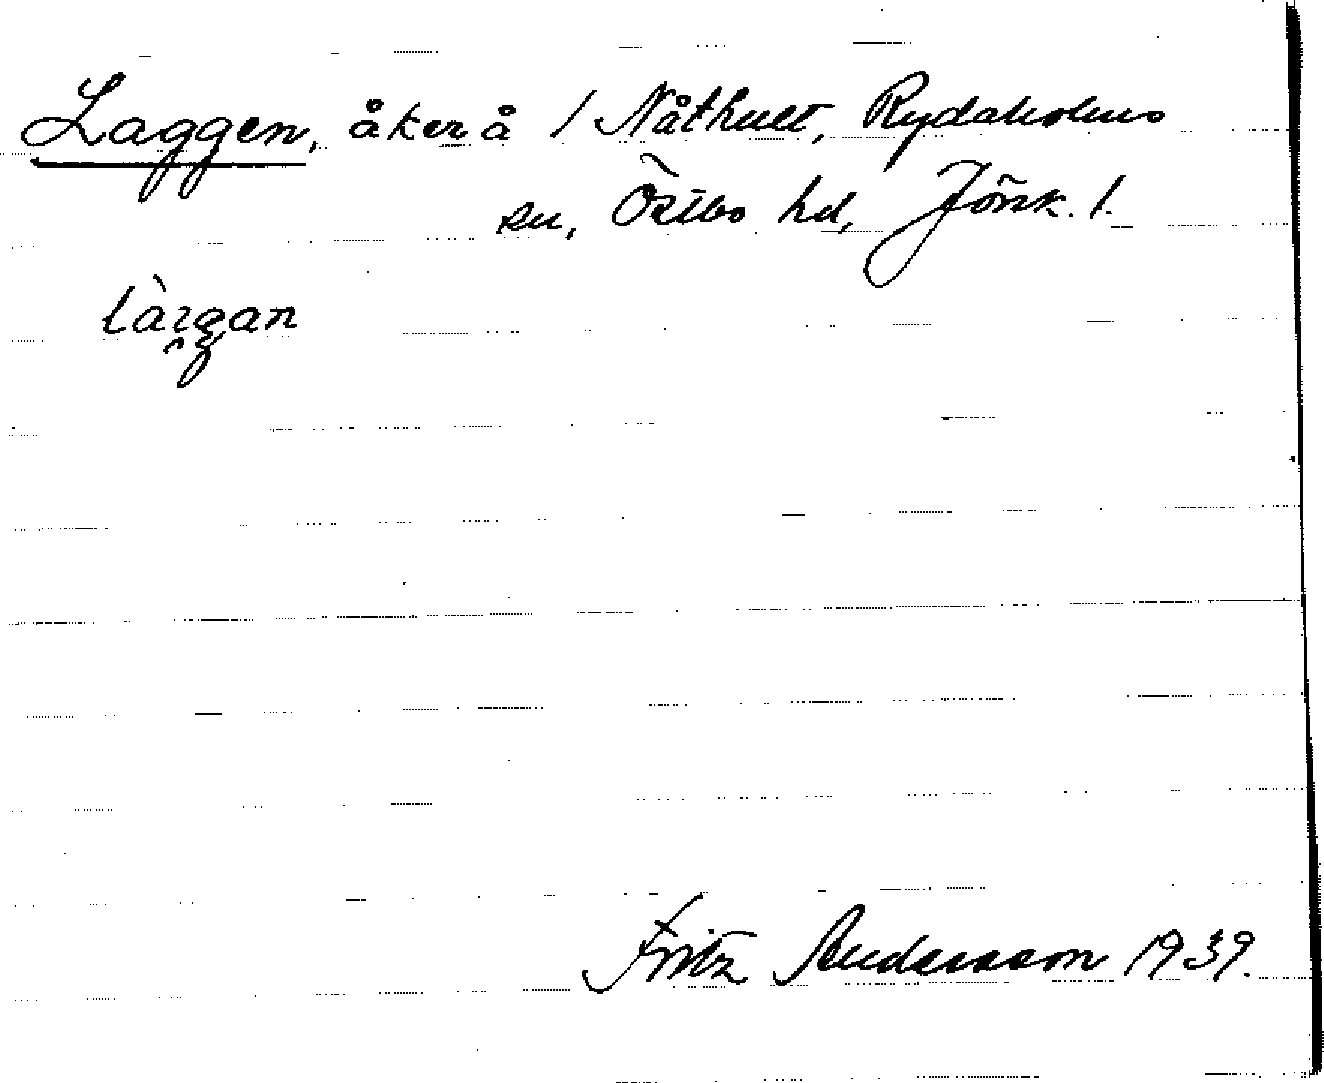 Laggen, åker å 1 Nåthult, Rydaholms
sn, Östbo hd, Jönk. l.
làggan
Fritz Andersson 1939.